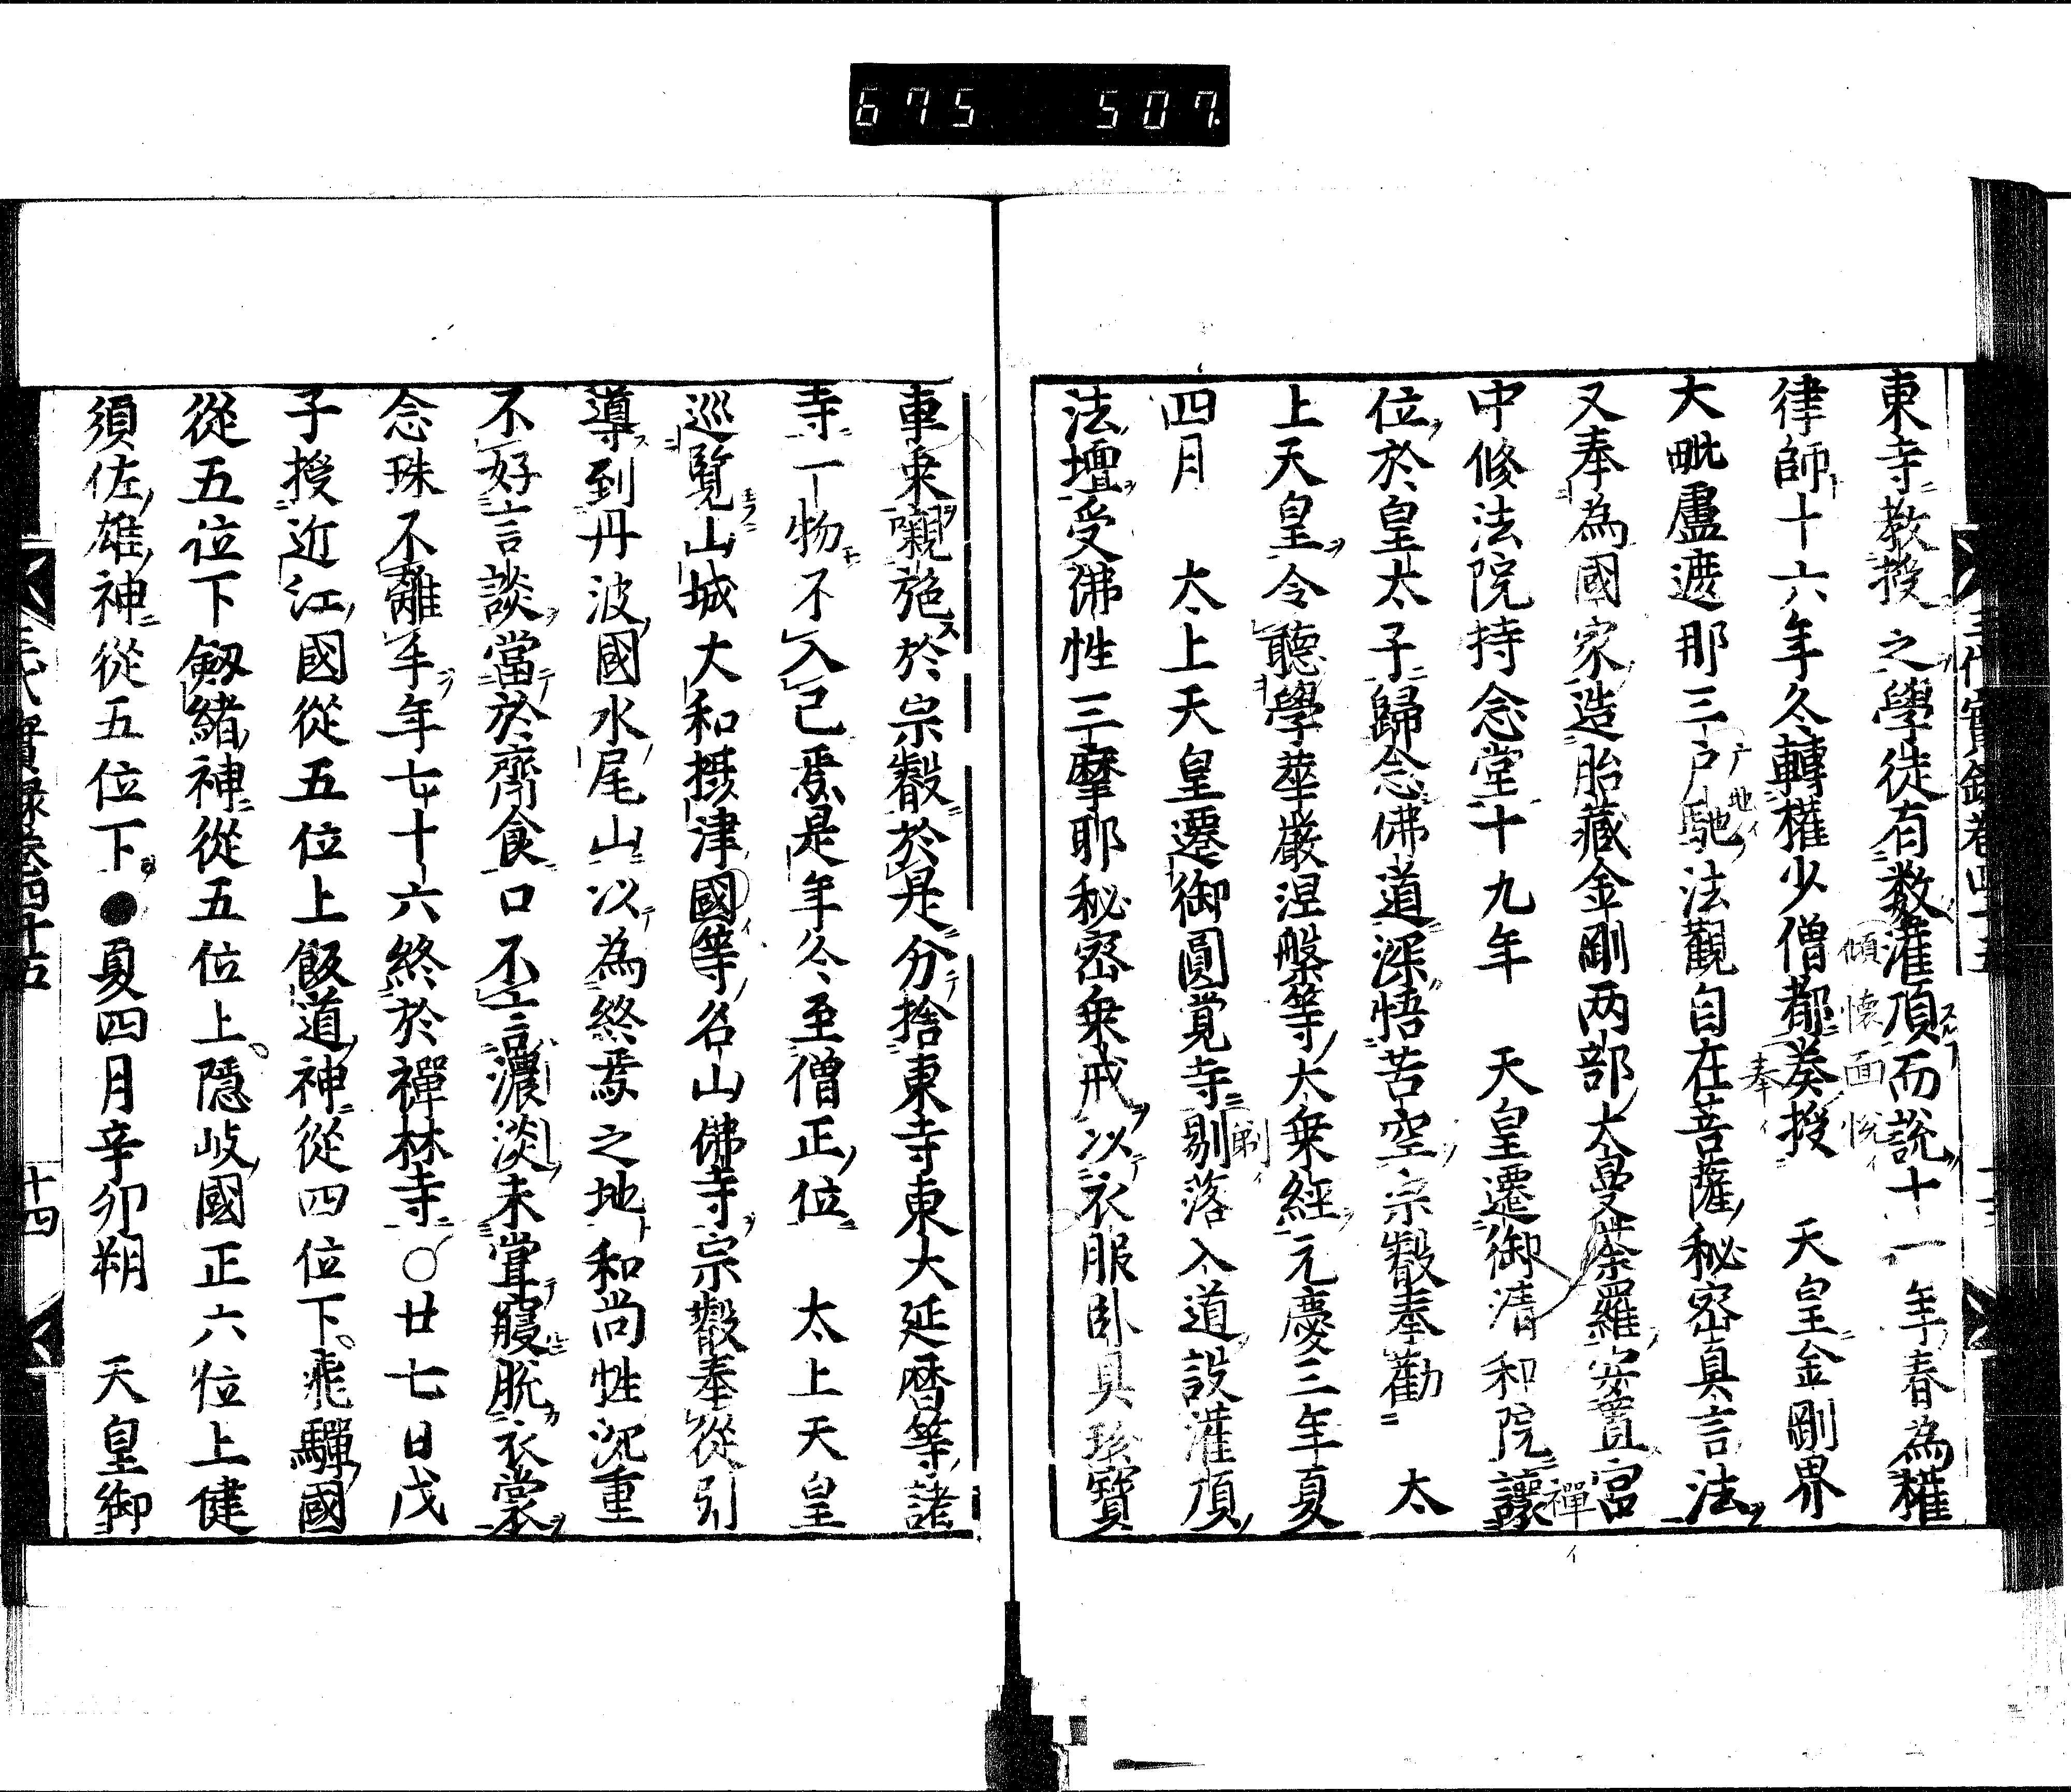 675 507
東寺教授之學徒有數灌頂而說十一年春為權
律師十六年冬轉權少僧都奏授　天皇金剛界
大毗盧遮那三戶馳法觀自在菩薩秘密真言法
又奉為國家造胎藏金剛両部大曼荼羅安置宮
中修法院持念堂十九年　天皇遷御清和院讓
位於皇太子歸念佛道深悟苦空宗叡奉勸　太
上天皇令聽學華嚴涅槃等大乗經元慶三年夏
四月　太上天皇遷御圓覚寺剔落入道設灌頂
法壇受佛性三摩耶秘密乗戒以衣服卧具珎寶
車乗嚫施於宗叡於是分捨東寺東大延暦等諸
寺一物不入己焉是年冬至僧正位　太上天皇
巡覽山城大和摂津國等名山佛寺宗叡奉從引
導到丹波國水尾山以為終焉之地和尚性沉重
不好言談當於齊食口不言濃淡未甞寢脫衣裳
念珠不離手年七十六終於禪林寺○廿七日戊
子授近江國從五位上飯道神從四位下飛驒國
從五位下劔緒神從五位上隱岐國正六位上健
須佐雄神從五位下●夏四月辛卯朔　天皇御
三代實録卷四十五　十四